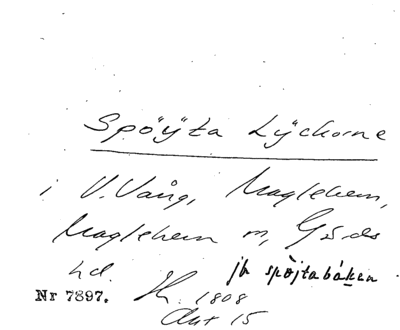 Spöÿta Lÿckorne
i V. Vång, Maglehem,
Maglehem sn, Gärds
hd. jfr spöjtabáken
Nr 7897. Sk. 1808
Akt 15